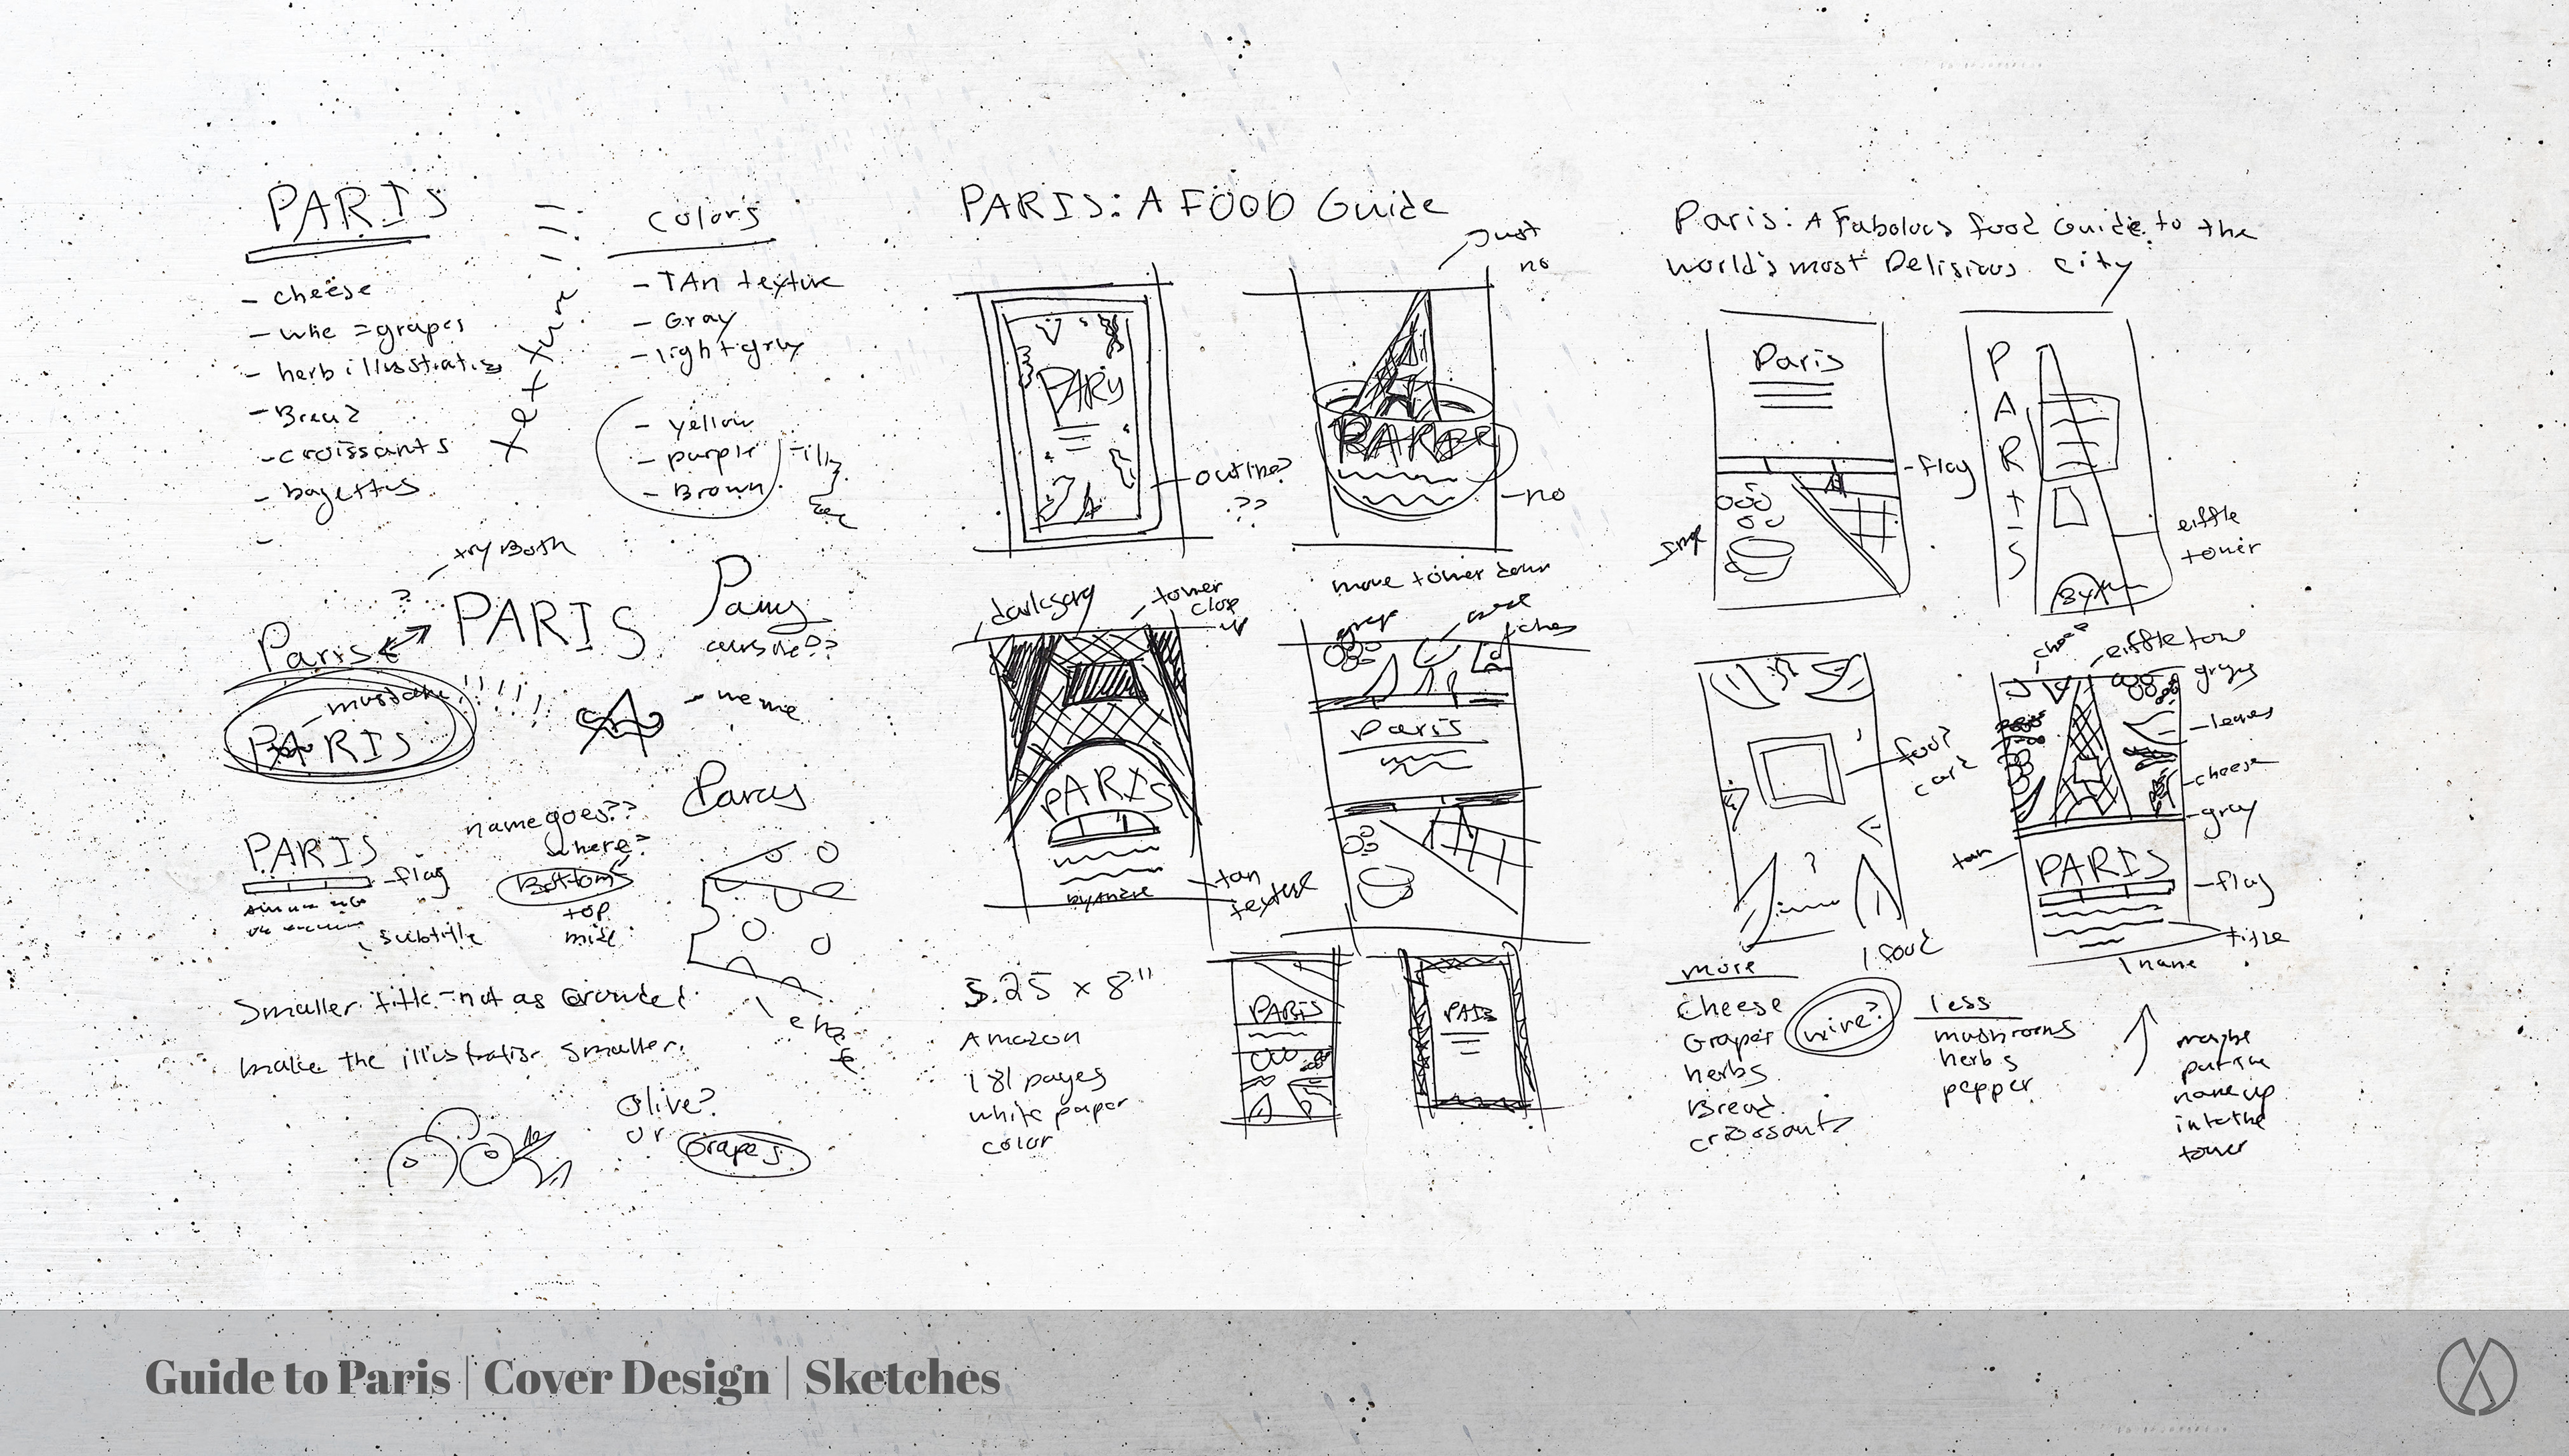 PARIS
- cheese
- wine = grapes
- herb illustrations
- Bread
- croissants
- bagettes
-
texture
colors
- TAn texture
- Gray
- light gray
- yellow
- purple
- Brown
try Both
?
Paris
PARIS
cursive??
mustache!!!!!
PARIS
- meme
PARIS
- flag
subtitle
name goes??
where?
Bottom
top
mid
Smaller title - not as Crowded
make the illustration smaller.
Olive?
or
Grapes
PARIS: A FOOD Guide
Just
no
PARIS
- outline?
??
- no
move tower down
dark gray
tower
close
up
PARIS
by name
- tan
texture
grape
Paris
5.25 x 8"
Amazon
181 pages
white paper
color
PARIS
PARIS
Paris: A Fabolous food Guide to the
world's most Delisious city
Paris
- flag
PARIS
eiffle
tower
food?
? food
cheese
eiffle tower
grapes
- leaves
- cheese
- gray
tan
PARIS
- flag
title
name
more
cheese
Grapes
herbs
Bread
croissants
wine?
less
mushrooms
herbs
pepper
maybe
put the
name up
into the
tower
Guide to Paris | Cover Design | Sketches